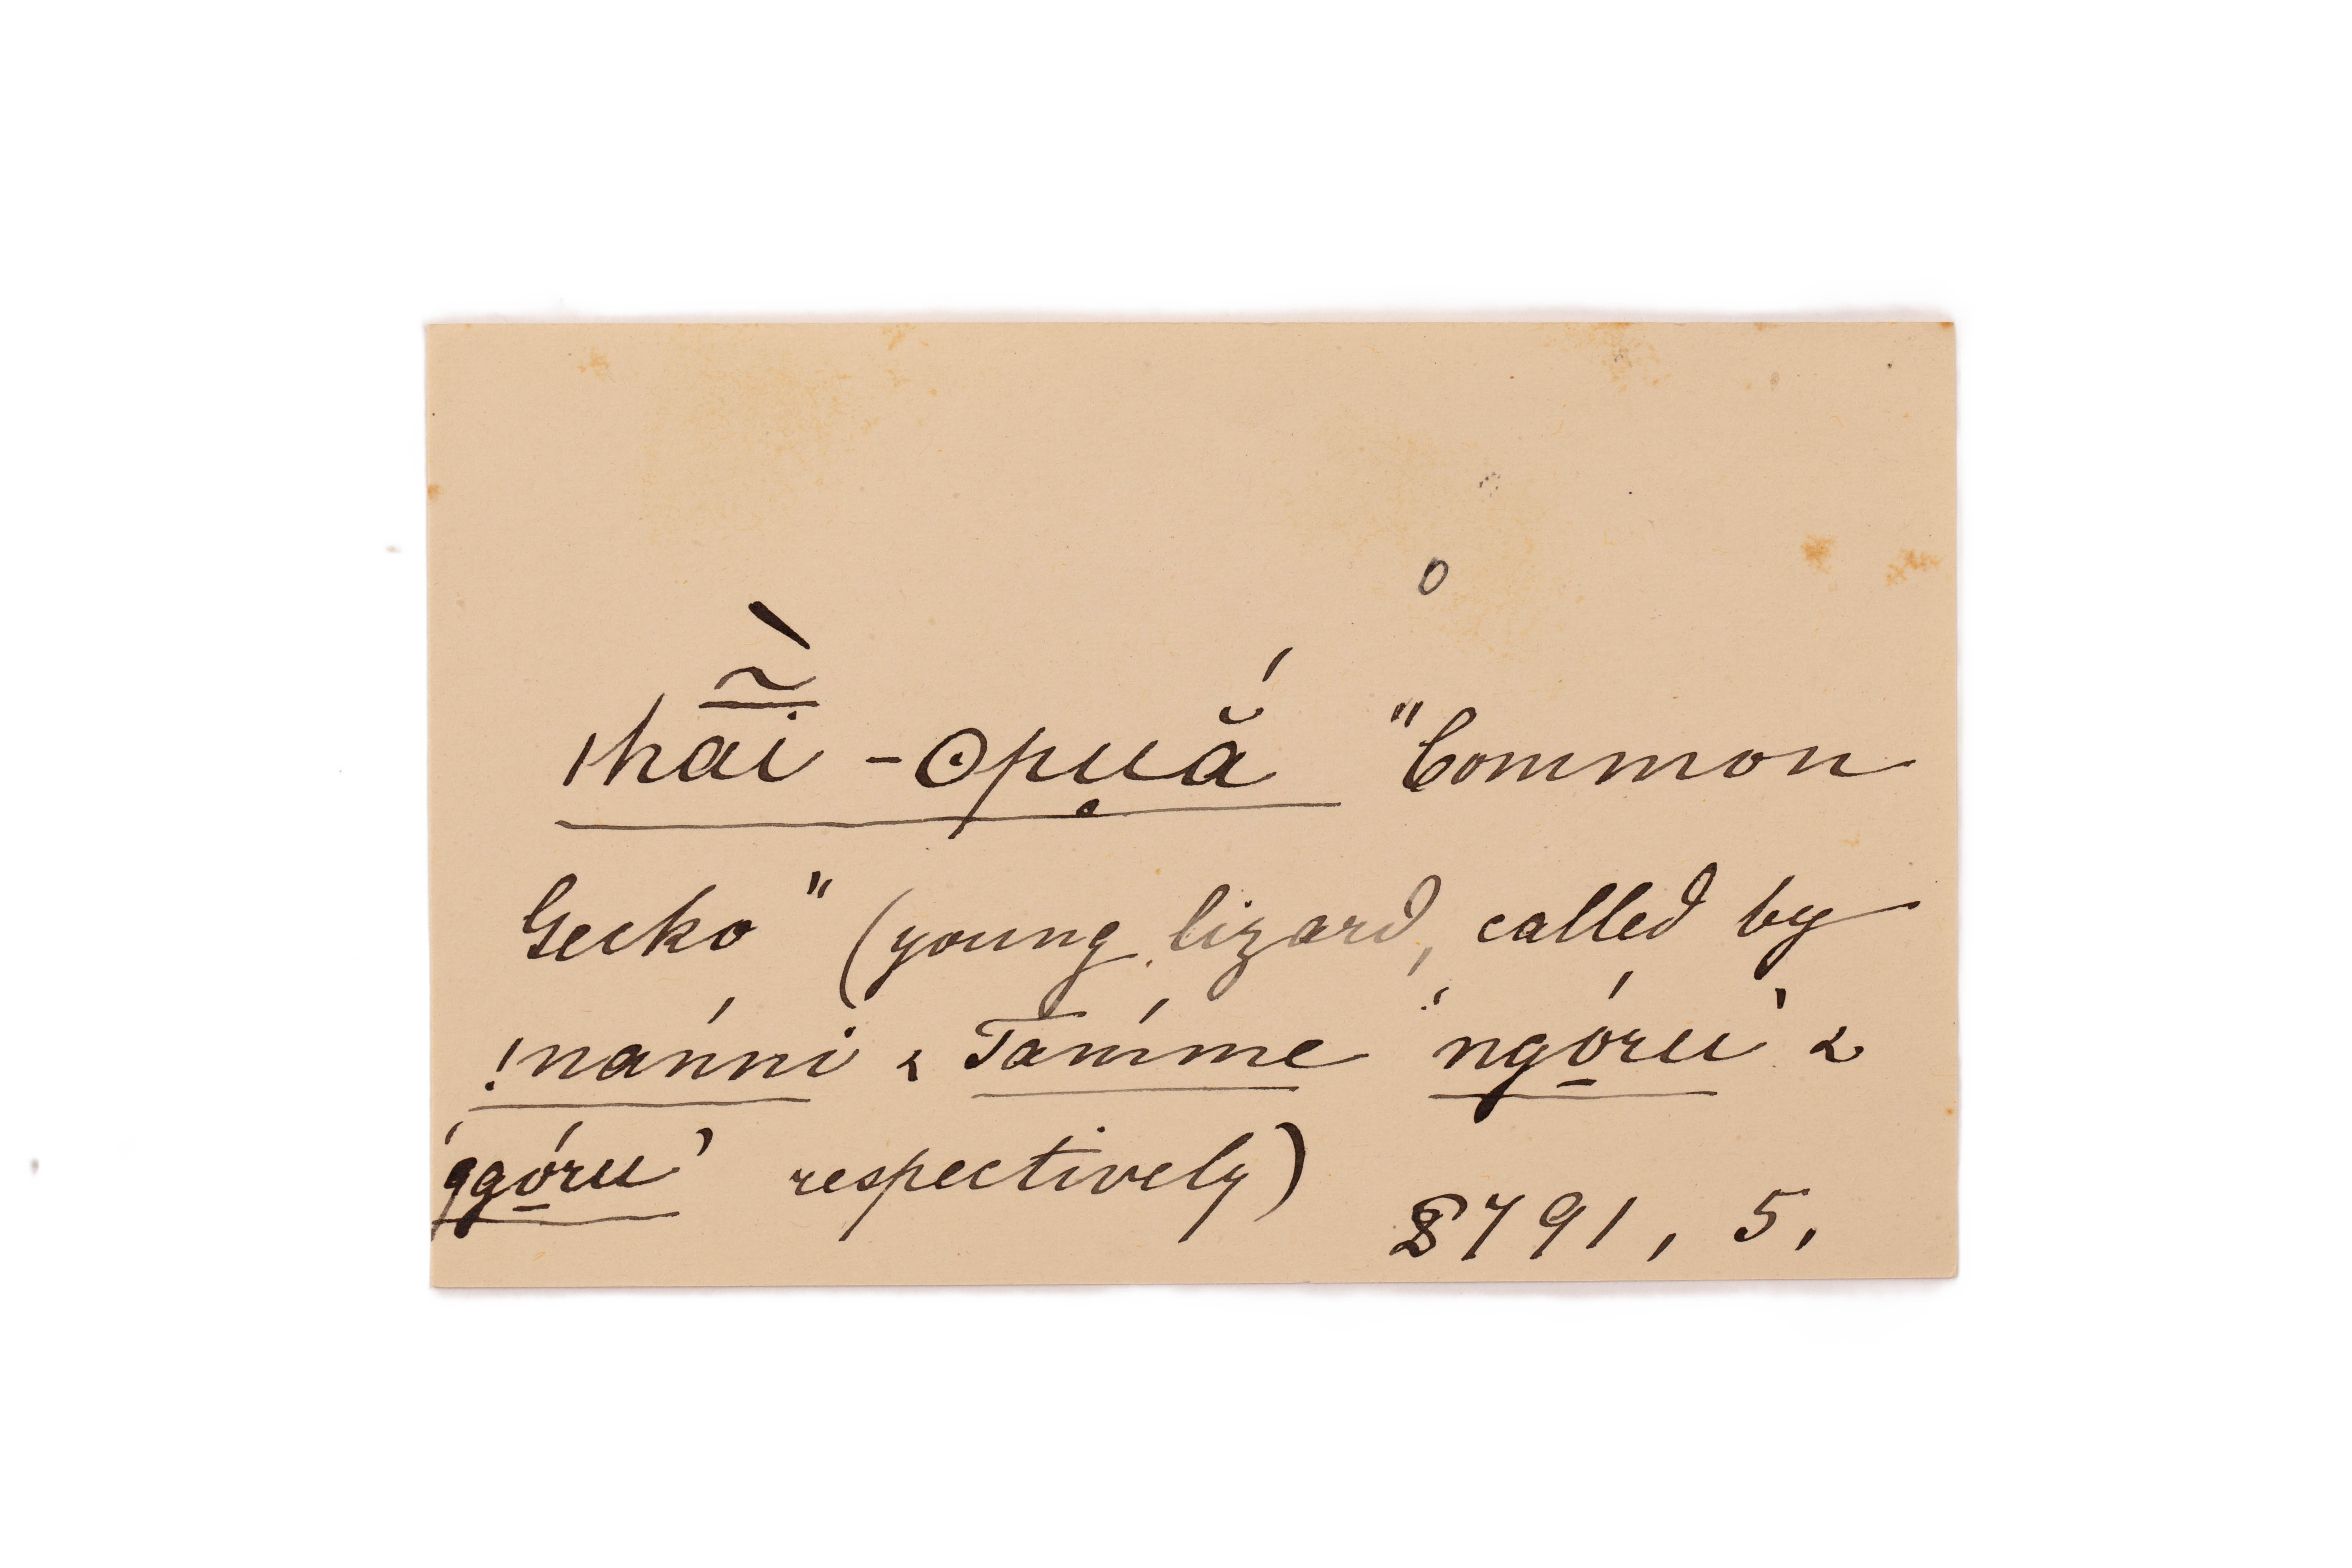 o
ǀhā̰̀i -ʘpṵắ "Common
Gecko" (young lizard, called by
!nánni & Támme 'ngó̱ru' &
'ɡgó̱ru' respectively)
8791, 5,